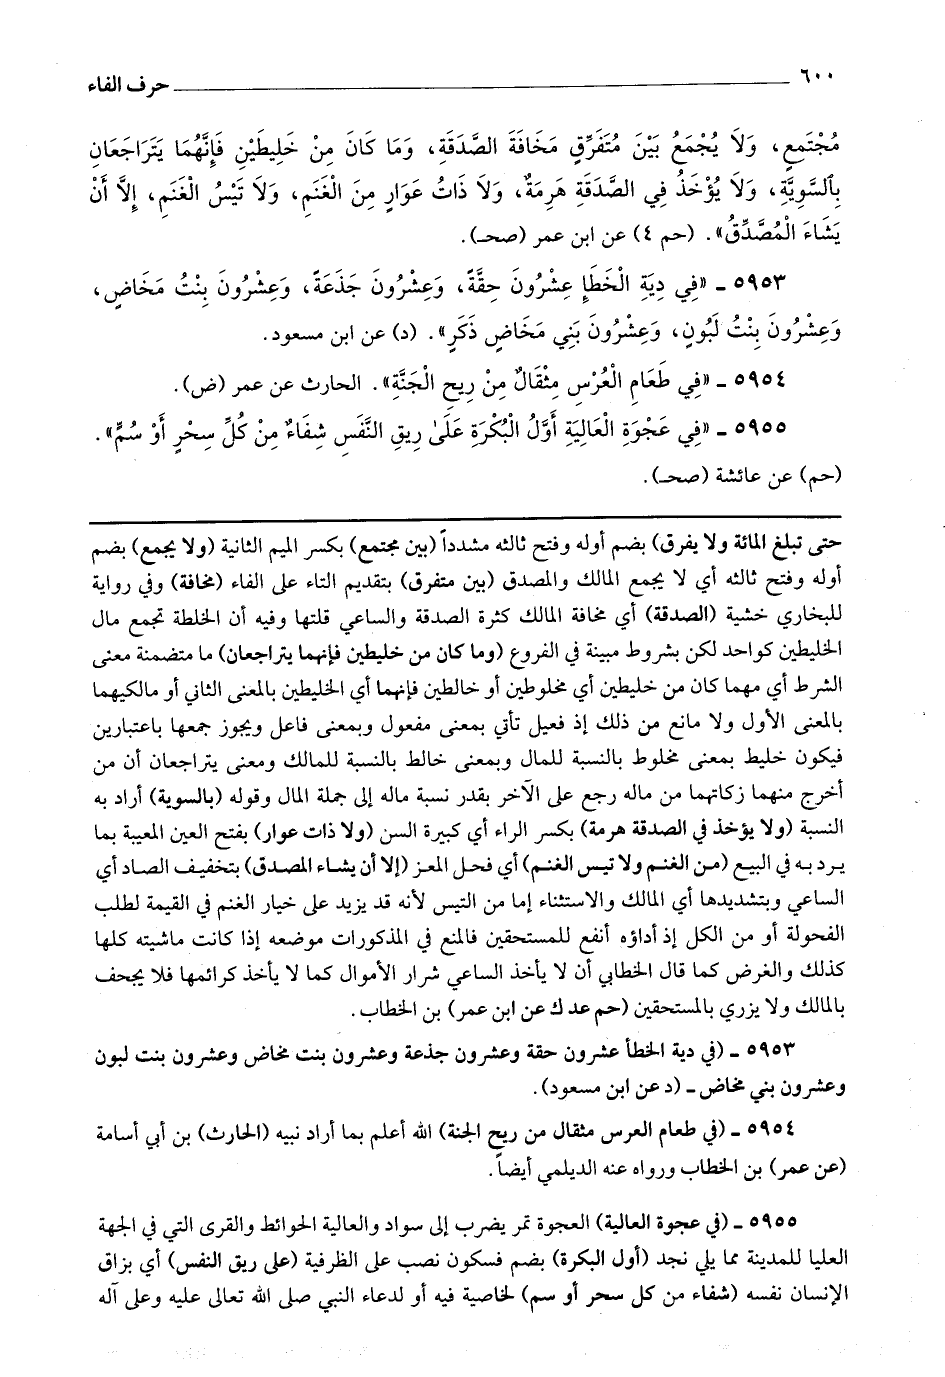 ٦٠٠ حرف الفاء
مُجْتَمِعٍ، وَلَا يُجْمَعُ بَيْنَ مُتَفَرِّقٍ مَخَافَةَ الصَّدَقَةِ، وَمَا كَانَ مِنْ خَلِيطَيْنِ فَإِنَّهُمَا يَتَرَاجَعَانِ
بِٱلسَّوِيَّةِ، وَلَا يُؤْخَذُ فِي الصَّدَقَةِ هَرِمَةٌ، وَلَا ذَاتُ عَوَارٍ مِنَ الْغَنَمِ، وَلَا تَيْسُ الْغَنَمِ، إِلَّا أَنْ
يَشَاءَ الْمُصَّدِّقُ». (حم ٤) عن ابن عمر (صحـ).
٥٩٥٣ ـ «فِي دِيَةِ الْخَطَإِ عِشْرُونَ حِقَّةً، وَعِشْرُونَ جَذَعَةً، وَعِشْرُونَ بِنْتُ مَخَاضٍ،
وَعِشْرُونَ بِنْتُ لَبُونٍ، وَعِشْرُونَ بَنِي مَخَاضٍ ذَكَرٍ». (د) عن ابن مسعود.
٥٩٥٤ ـ «فِي طَعَامِ الْعُرْسِ مِثْقَالٌ مِنْ رِيحِ الْجَنَّةِ». الحارث عن عمر (ض).
٥٩٥٥ ـ «فِي عَجْوَةِ الْعَالِيَةِ أَوَّلُ الْبُكْرَةِ عَلَىٰ رِيقِ النَّفَسِ شِفَاءٌ مِنْ كُلِّ سِحْرٍ أَوْ سُمٍّ».
(حم) عن عائشة (صحـ).
حتى تبلغ المائة ولا يفرق) بضم أوله وفتح ثالثه مشدداً (بين مجتمع) بكسر الميم الثانية (ولا يجمع) بضم
أوله وفتح ثالثه أي لا يجمع المالك والمصدق (بين متفرق) بتقديم التاء على الفاء (مخافة) وفي رواية
للبخاري خشية (الصدقة) أي مخافة المالك كثرة الصدقة والساعي قلتها وفيه أن الخلطة تجمع مال
الخليطين كواحد لكن بشروط مبينة في الفروع (وما كان من خليطين فإنهما يتراجعان) ما متضمنة معنى
الشرط أي مهما كان من خليطين أي مخلوطين أو خالطين فإنهما أي الخليطين بالمعنى الثاني أو مالكيهما
بالمعنى الأول ولا مانع من ذلك إذ فعيل تأتي بمعنى مفعول وبمعنى فاعل ويجوز جمعها باعتبارين
فيكون خليط بمعنى مخلوط بالنسبة للمال وبمعنى خالط بالنسبة للمالك ومعنى يتراجعان أن من
أخرج منهما زكاتهما من ماله رجع على الآخر بقدر نسبة ماله إلى جملة المال وقوله (بالسوية) أراد به
النسبة (ولا يؤخذ في الصدقة هرمة) بكسر الراء أي كبيرة السن (ولا ذات عوار) بفتح العين المعيبة بما
يرد به في البيع (من الغنم ولا تيس الغنم) أي فحل المعز (إلا أن يشاء المصدق) بتخفيف الصاد أي
الساعي وبتشديدها أي المالك والاستثناء إما من التيس لأنه قد يزيد على خيار الغنم في القيمة لطلب
الفحولة أو من الكل إذ أداؤه أنفع للمستحقين فالمنع في المذكورات موضعه إذا كانت ماشيته كلها
كذلك والغرض كما قال الخطابي أن لا يأخذ الساعي شرار الأموال كما لا يأخذ كرائمها فلا يجحف
بالمالك ولا يزري بالمستحقين (حم عد ك عن ابن عمر) بن الخطاب.
٥٩٥٣ ـ (في دية الخطأ عشرون حقة وعشرون جذعة وعشرون بنت مخاض وعشرون بنت لبون
وعشرون بني مخاض ـ (د عن ابن مسعود).
٥٩٥٤ ـ (في طعام العرس مثقال من ريح الجنة) الله أعلم بما أراد نبيه (الحارث) بن أبي أسامة
(عن عمر) بن الخطاب ورواه عنه الديلمي أيضاً.
٥٩٥٥ ـ (في عجوة العالية) العجوة تمر يضرب إلى سواد والعالية الحوائط والقرى التي في الجهة
العليا للمدينة مما يلي نجد (أول البكرة) بضم فسكون نصب على الظرفية (على ريق النفس) أي بزاق
الإنسان نفسه (شفاء من كل سحر أو سم) لخاصية فيه أو لدعاء النبي صلى الله تعالى عليه وعلى آله